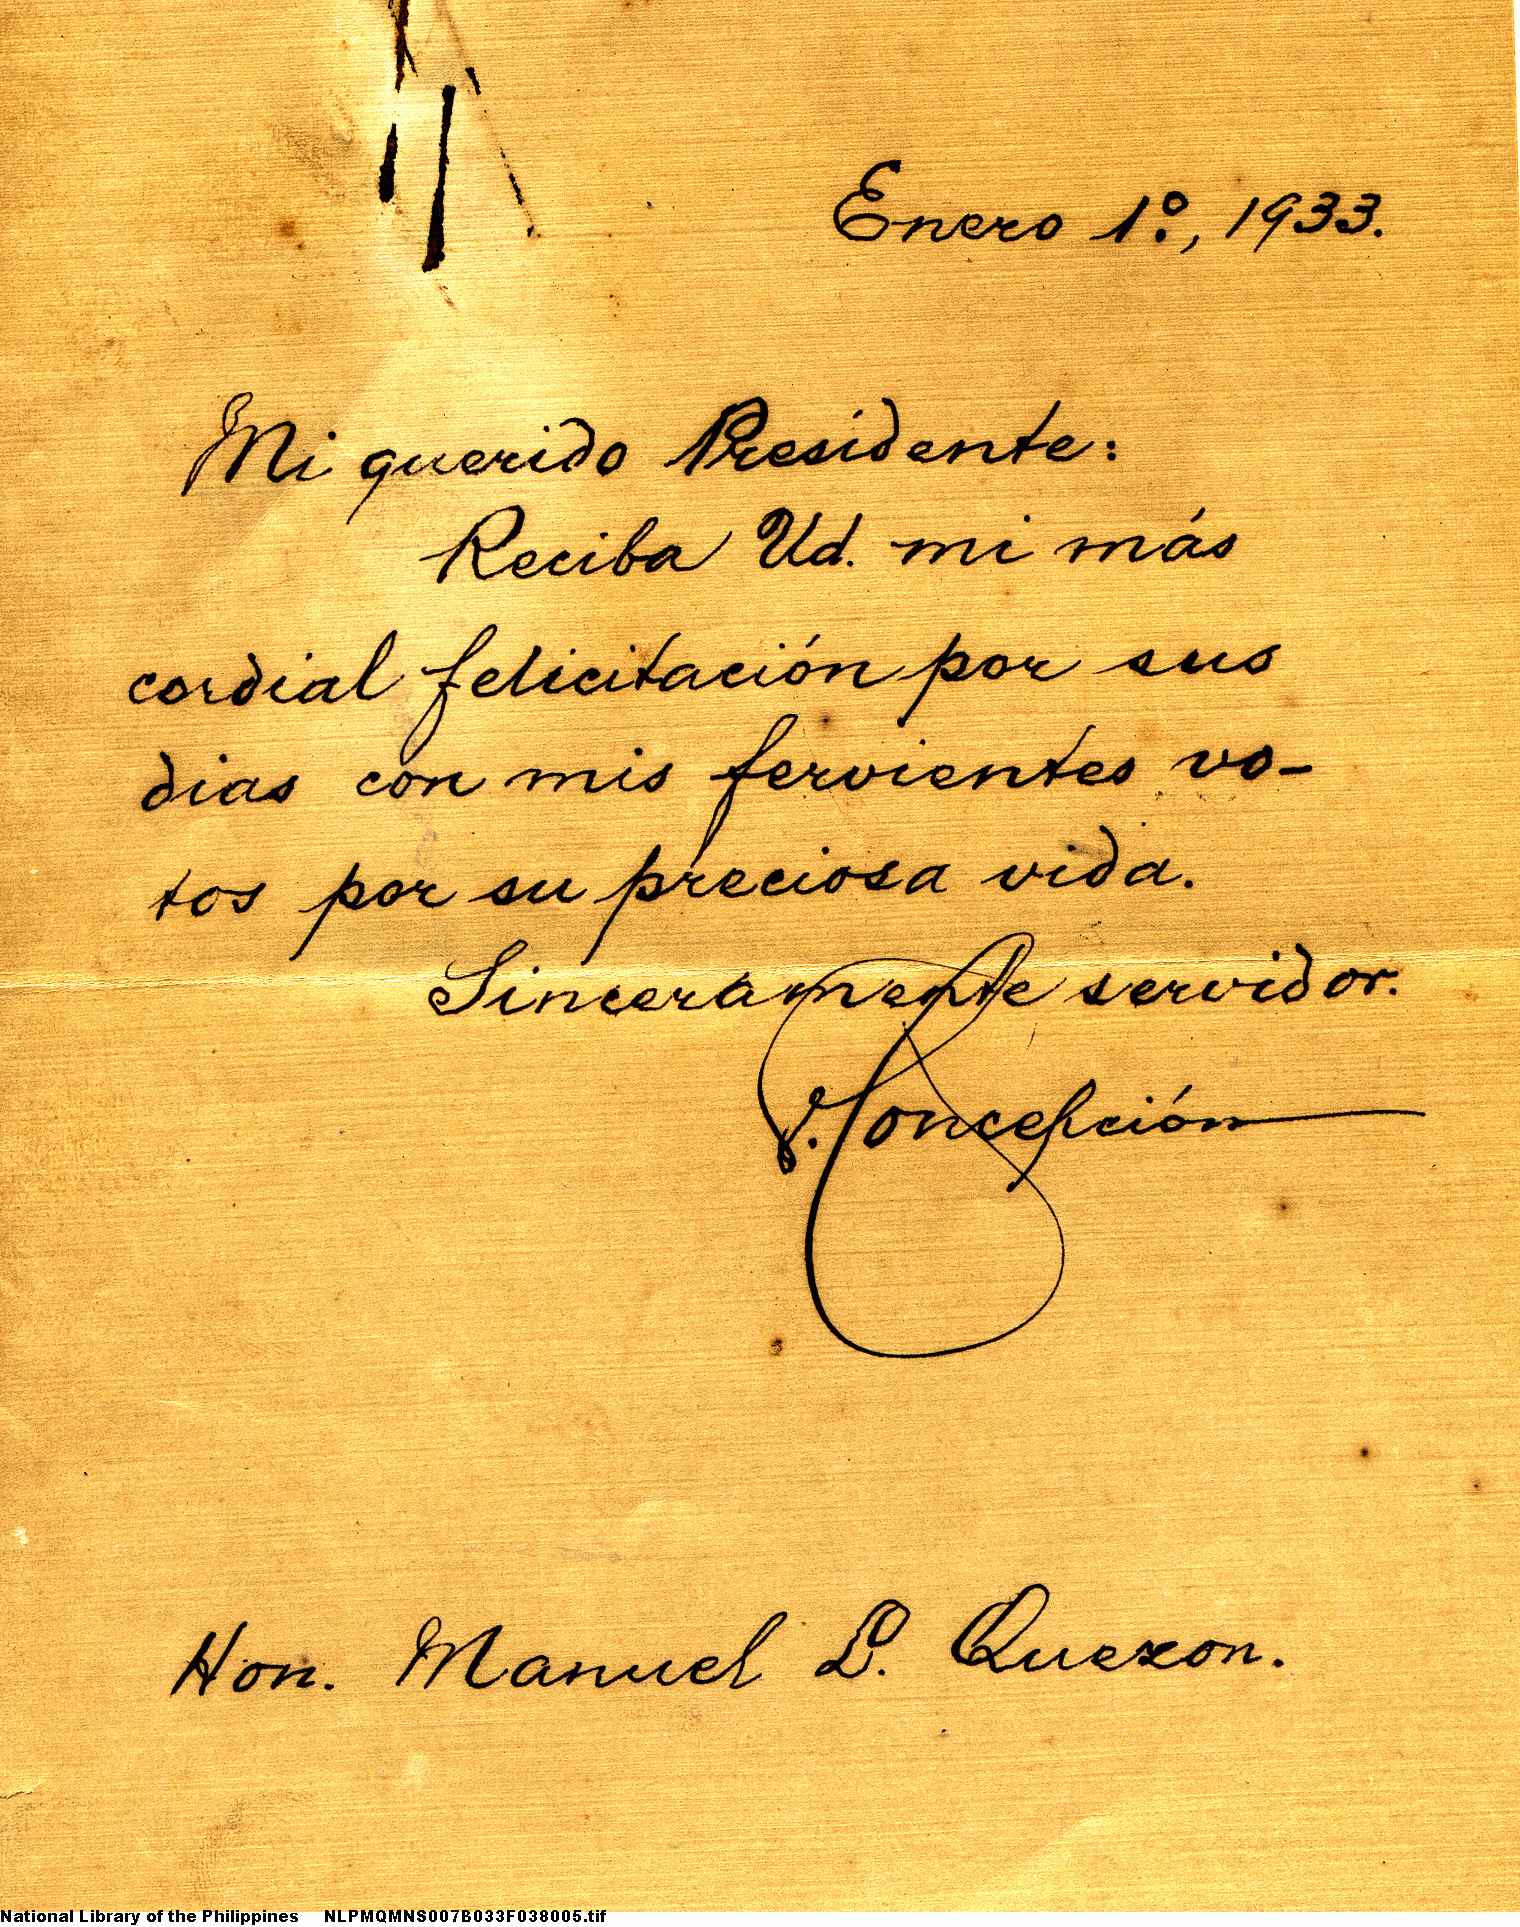 Enero 1º, 1933.
Mi querido Presidente:
Reciba Ud. mi más
cordial felicitación por sus
dias con mis fervientes vo-
tos por su preciosa vida.
Sinceramente servidor.
V. Concepción
Hon. Manuel L. Quezon.
National Library of the Philippines NLPMQMNS007B033F038005.tif